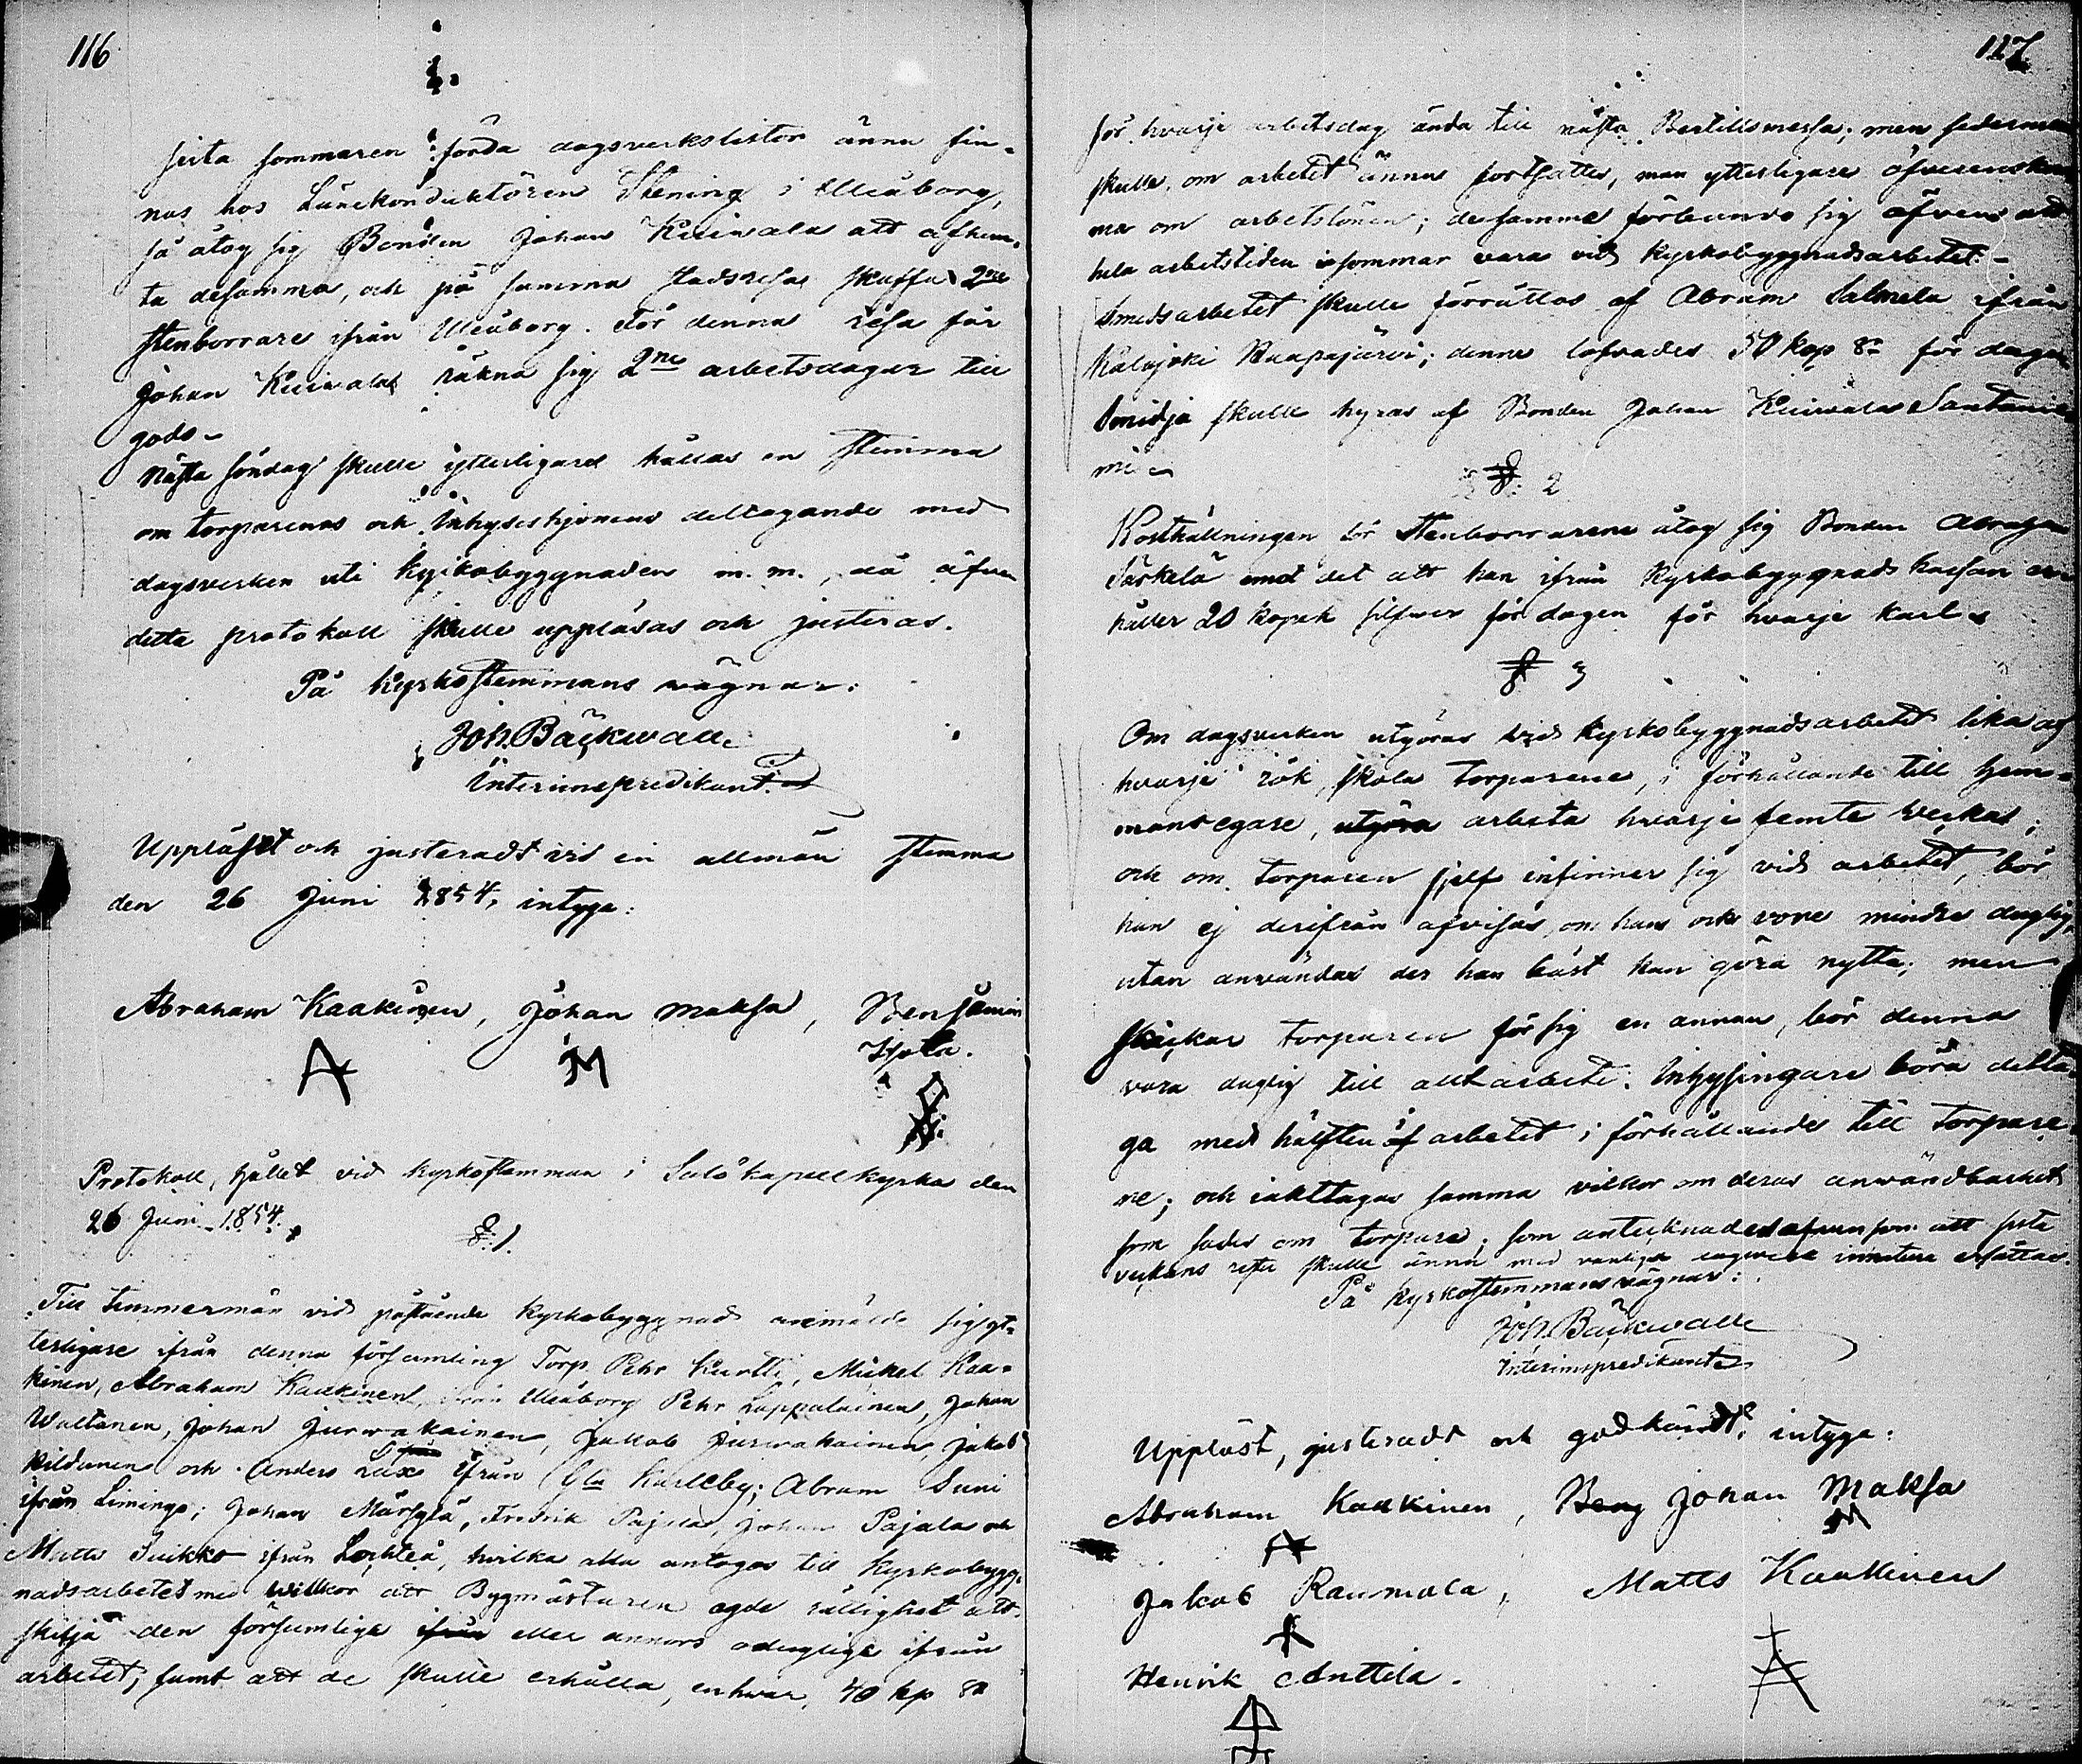 116
sista sommaren förda dagsverkslistor ännu fin-
nas hos Länekonduktören Stening i Uleåborg,
så åtog sig Bonden Johan Kuiwala att afhem-
ta desamma, och på samma stadsresa skaffa 2ne
stenborrare ifrån Uleåborg. För denna resa får
Johan Kuiwala räkna sig 2ne arbetsdagar till
godo.
Nästa söndag skulle ytterligare hållas en stemma
om torparenas och Inhyseshjonens deltagande med
dagsverken uti kyrkobyggnaden m. m., då äfven
detta protokoll skulle uppläsas och justeras.
På Kyrkostemmans vägnar:
Joh. Bäckwall
Interimspredikant.
Uppläst och justeradt vid en allmän stemma
den 26 Juni 1854, intyga:
Abraham Kaakinen, Johan Maksa, Benjamin
Ypta.
A M
Protokoll, hållet vid kyrkostemman i Salo kapellkyrka den
26 Juni 1854.
§ 1.
Till timmermän vid påstående kyrkobyggnad anmälde sig yt-
terligare ifrån denna församling Torp. Pehr Kurtti, Mickel Kaa-
kinen, Abraham Kaakinen, ifrån Uleåborg Pehr Lappalainen, Johan
Waltanen, Johan Jurwakainen, Jakob Jurwakainen, Jakob
Kildanen och Anders Lax ifrån Gla Karleby; Abram Suni
ifrån Limingo; Johan Märsylä, Fredrik Pajala, Johan Pajala och
Matts Suikko ifrån Lochteå, hvilka alla antogos till kyrkobygg-
nadsarbetet med willkor att Bygmästaren egde rättighet att
skilja den försumliga ifrån eller annors odugliga ifrån
arbetet; samt att de skulle erhålla, enhvar, 40 kp Sr
117
för hvarje arbetsdag ända till nästa Bertillsmessa; men sedermera
skulle, om arbetet ännu fortsattes, man ytterligare öfverenskom-
ma om arbetslönen; desamma förbundo sig äfven att
hela arbetstiden i sommar vara vid kyrkobyggnadsarbetet.
Smedsarbetet skulle förrättas af Abram Salmela ifrån
Kalajoki Raapajärvi; denne lofvades 50 kop Sr för dagen
Smidja skulle hyras af Bonden Johan Kuiwala
§ 2
Kosthållningen för Stenborrarene åtog sig Bonden Abraham
Särkelä emot det att han ifrån Kyrkobyggnads kassan er-
håller 20 kopek silfver för dagen för hvarje karl.
§ 3
Om dagsverken utgöras vid Kyrkobyggnadsarbetet lika af
hvarje rök, skola torparene, i förhållande till hem-
mansegare, utgöra arbeta hvarje femte vecka;
och om torparen sjelf infinner sig vid arbetet, bör
han ej derifrån afvisas, om han ock vore mindre duglig,
utan användas der han bäst kan göra nytta; men
skickar torparen för sig en annan, bör denna
vara duglig till allt arbete. Inhysingare böra delta-
ga med hälften af arbetet i förhållande till torpare-
ne; och iakttagas samma vilkor om deras användbarhet
som sades om torpare; som antecknades äfvensom att sista
veckans rester skulle ännu med
På kyrkostemmans vägnar:
Joh. Bäckwall
Interimspredikant
Uppläst, justeradt och godkändt, intyga:
Abraham Kaakinen, Beng Johan Maksa
M
Jakob Raumala, Matts Kaakinen
Henrik Anttila.